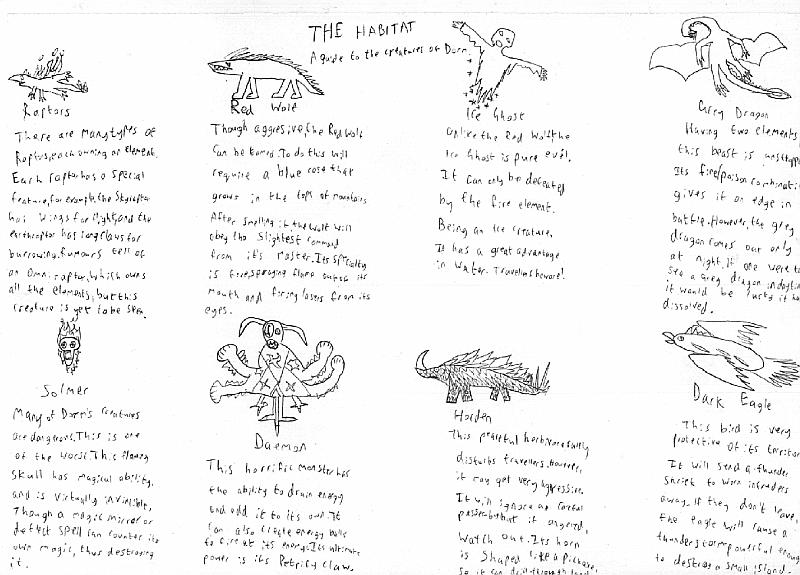 THE HABITAT
A guide to the creatures of Dorm.
Raptors
There are many types of
Raptors, each owning an element.
Each raptor has a special
feature, for example, the Skyraptor
has wings for flight, and the
earthraptor has long claws for
burrowing. Rumours tell of
an Omniraptor, which owns
all the elements, but this
creature is yet to be seen.
Red Wolf
Though aggresive, the Red Wolf
can be tamed. To do this will
require a blue rose that
grows in the tops of mountains
After smelling it the Wolf will
obey the slightest command
from it's master. Its specialty
is fire, spraying flame out of its
mouth and firing lasers from its
eyes.
Ice Ghost
Unlike the Red Wolf, the
Ice Ghost is pure evil.
It can only be defeated
by the fire element.
Being an ice creature,
It has a great advantage
in water. Travellers beware!
Grey Dragon
Having two elements,
this beast is
Its fire/poison
gives it an edge in
battle. However, the grey
dragon comes out only
at night. If one were to
see a grey dragon in
it would be lucky it
dissolved.
Solmer
Many of Dorm's creatures
are dangerous. This is one
of the worst. This flaming
skull has magical ability,
and is virtually invincible,
Though a magic mirror or
deflect spell can counter its
own magic, thus destroying
it.
Daemon
This horrific monster has
the ability to drain energy
and add it to its own. It
can also create energy balls
to fire at its enemys. Its ultimate
power is its Petrify Claw.
Horden
This peaceful herbivore
disturbs travellers, however,
it may get very aggressive.
It will ignore a careful
passer but if angered,
watch out. Its horn
is shaped like a pickaxe,
so it can drill through
Dark Eagle
This bird is very
protective of its
It will send a thunder
shriek to warn intruders
away. If they don't leave,
the eagle will cause a
thunderstorm powerful enough
to destroy a small island.